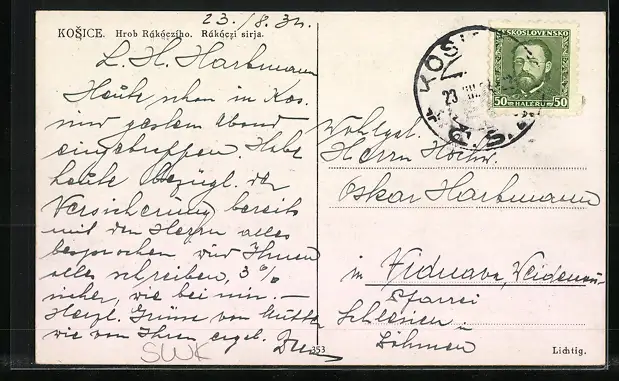 23./8.34.
KOŠICE. Hrob Rákócziho. Rákóczi sirja.
L. H. Hartmann
Heute, schon in Kos.
sind gestern Abend
eingetroffen. Habe
heute bezügl. der
Versicherung bereits
mit den Herrn alles
besprochen wird Ihnen
alles schreiben, 3%
sicher, wie bei mir. —
Herzl. Grüsse von Mutter
wie von Ihrem ergeb.
SWK
353
ČESKOSLOVENSKO
50 HALERU 50
KOŠICE
23 VIII
Wohlgeb.
Herrn Hochw.
Oskar Hartmann
in Vidnava, Weidenau
Pfarrei
Schlesien
Böhmen
Lichtig.